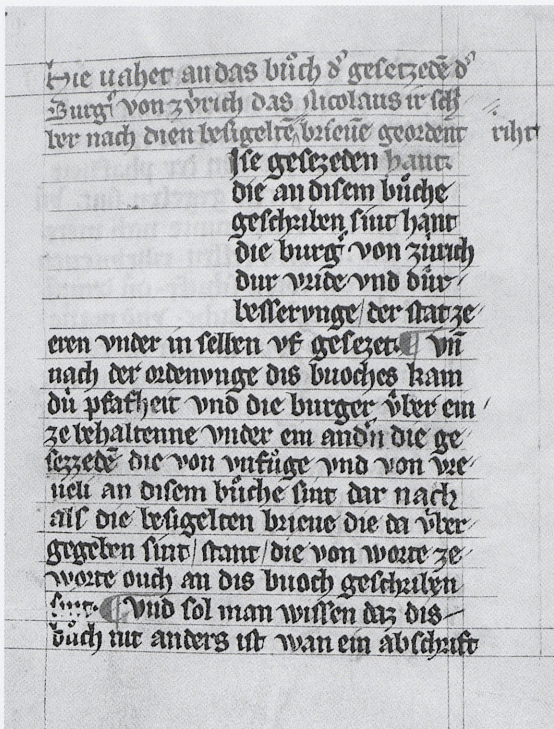 Hie vahet an das bůch dˢ gesetzedē dˢ
Burgˢ von zv̍rich das Nicolaus ir schˢ
ber nach dien besigeltē brieuē geordent riht
Ise gesezeden hant
die an disem bůche
geschriben sint hant
die burgˢ von zúrich
dur vride vnd dur
besserunge / der stat ze
eren vnder in selben vf gesezet ¶ vn̄
nach der ordenvnge dis buoches kam
dú pfafheit vnd die burger v́ber ein
ze behaltenne vnder ein andˢn die ge
sezzedē die von vnfůge vnd von vre
ueli an disem bůche sint dar nach
als die besigelten brieue die da v́ber
gegeben sint / stant / die von worte ze
worte ouch an dis buoch geschriben
sint. ¶ Vnd sol man wissen daz dis
bůch nit anders ist wan ein abschrift